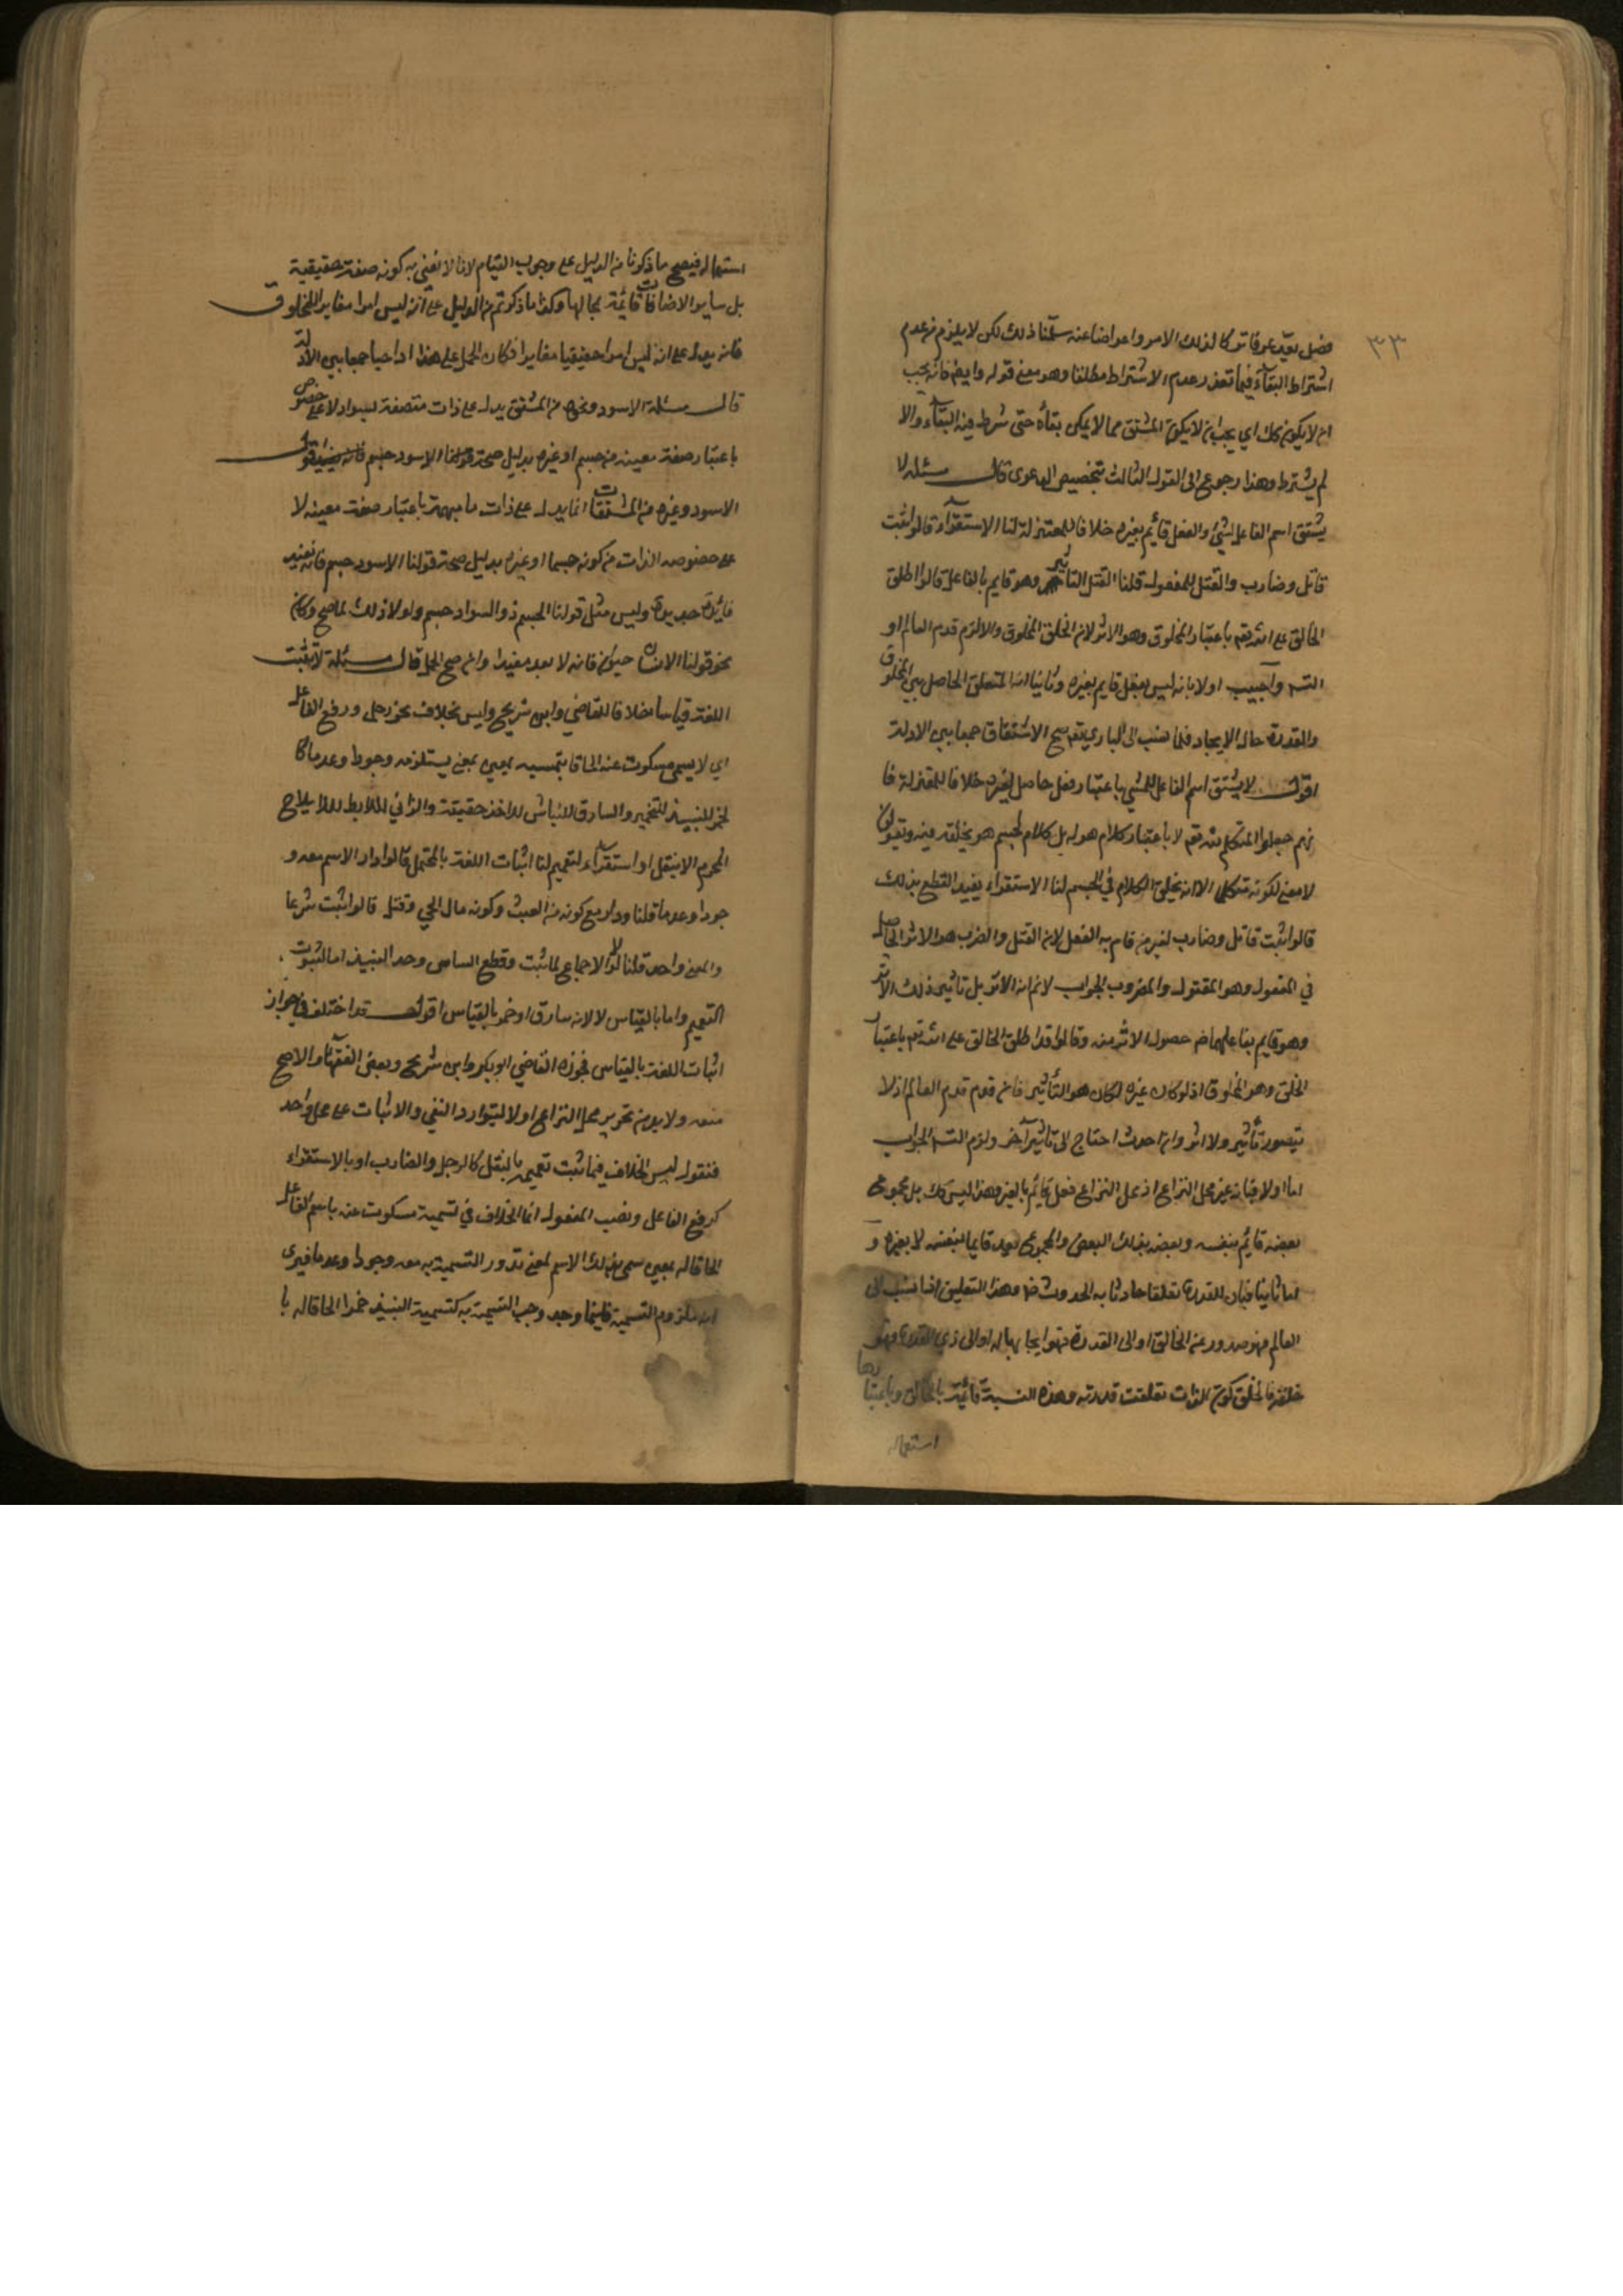 ٣٣
فصل يعد عرفا تركا لذلك الامر واعراضا عنه سلمنا ذلك لكن لا يلزم من عدم
اشتراط البقاء فيما تعذر عدم الاشتراط مطلقا وهو معنى قوله وايضا فانه يجب
ان لا يكون كك اي يجب ان لا يكون المشتق مما لا يمكن بقاه حتى شرط فيه البقاء والا
لم يشترط وهذا رجوع الى القول الثالث بتخصيص الدعوى قال مسئلة لا
يشتق اسم الفاعل لشئ والفعل قائم بغيره خلافا للمعتزلة لنا الاستقراء قالوا ثبت
قاتل وضارب والقتل للمفعول قلنا القتل التاثير وهو قايم بالفاعل قالوا اطلق
الخالق على الله تعم باعتبار المخلوق وهو الاثر لان الخلق المخلوق والا لزم قدم العالم او
التسـ واجيب اولا بانه ليس بفعل قايم بغيره وثانيا انه المتعلق الحاصل بين المخلوق
والقدرة حال الايجاد فلما نسب الى الباري تعم صح الاشتقاق جمعا بين الادلة
اقول لا يشتق اسم الفاعل للشي باعتبار فعل حاصل لغيره خلافا للمعتزلة فا
نهم جعلوا المتكلم لله تعم لا باعتبار كلام هو له بل كلام لجسم هو يخلقه فيه ويقولون
لا معنى لكونه متكلما الا انه يخلق الكلام في الجسم لنا الاستقراء يفيد القطع بذلك
قالوا ثبت قاتل وضارب لغير من قام به الفعل لان القتل والضرب هو الاثر الحاصل
في المفعول وهو المقتول والمضروب الجواب لا نم انه الاثر بل تاثير ذلك الاثر
وهو قايم بفاعلهما ضم حصول الاثر منه وقالوا قد اطلق الخالق على الله تعم باعتبار
الخلق وهو المخلوق اذ لو كان غيره لكان هو التأثير فان قدم قدم العالم اذ لا
يتصور تأثير ولا اثر وان حدث احتاج الى تاثير آخر ولزم التسـ الجواب
اما اولا فبانه غير محل النزاع اذ محل النزاع فعل قائم بالغير وهذا ليس كك بل مجموع
بعضه قائم بنفسه وبعضه بذلك البعض والمجموع يعد قايما بنفسه لا بغيره و
اما ثانيا فبان للقدرة تعلقا حادثا به الحدوث ضم وهذا التعليق اذا نسب الى
العالم فهو صدور عنه الخالق او الى القدرة فهو ايجابها له او الى ذي القدرة فهو
خلقه فالخلق كون الذات تعلقت قدرته وهذه النسبة قائمة بالخالق وباعتبارها
استعماله
استعماله فيصح ما ذكرنا من الدليل على وجوب القيام لانا لا نعني به كونه صفة حقيقية
بل ساير الاضافات قائمة بحالها وكذا ما ذكرتم من الدليل على انه ليس امرا مغايرا للمخلوق
فانه يدل على انه ليس امرا حقيقيا مغايرا فكان الحمل على هذا واجبا جمعا بين الادلة
قال مسئلة الاسود ونحوه من المشتق يدل على ذات متصفة بسواد لا على خصوص
باعتبار صفة معينة من جسم او غيره بدليل صحة قولنا الاسود جسم اقول
الاسود وغيره من المشتقات انما يدل على ذات ما مبهمة باعتبار صفة معينة لا
على خصوصه الذات من كونه جسما او غيره بدليل صحة قولنا الاسود جسم فانه يفيد
فايدة جديدة وليس مثل قولنا الجسم ذو السواد جسم ولولا ذلك لما صح وكان
نحو قولنا الانسان حيوان فانه لا يعد مفيدا وان صح الحمل قال مسئلة لا تثبت
اللغة قياسا خلافا للقاضي وابن شريح وليس الخلاف نحو رجل ورفع الفاعل
اي لا يسمى مسكوت عنه الحاقا بتسميه لمعين بمعنى يستلزمه وجودا وعدما كا
لخمر للنبيذ للتخمير والسارق للنباش للاخذ خفية والزاني للايط للايلاج
المحرم الا بنقل او استقراء لتعميم لنا اثبات اللغة بالمحتمل قالوا دار الاسم معه و
جودا وعدما قلنا ودار مع كونه من العنب وكونه مال الحي وقتل قالوا ثبت شرعا
والمعنى واحد قلنا لولا الاجماع لما ثبت وقطع السارق وحد النبيذ اما لثبوت
التعميم واما بالقياس لا لانه سارق او خمر بالقياس اقول قد اختلف في جواز
اثبات اللغة بالقياس فجوزه القاضي ابو بكر وابن شريح وبعض الفقهاء والاصح
منعه ولا بد من تحرير محل النزاع اولا ليتوارد النفي والاثبات على محل واحد
فنقول ليس الخلاف فيما ثبت تعميمه بالنقل كالرجل والضارب او بالاستقراء
كرفع الفاعل ونصب المفعول انما الخلاف في تسمية مسكوت عنه باسم كفاعل
الحاقا له بمعين سمى بذلك الاسم لمعنى تدور التسمية به معه وجودا وعدما فيرى
انه ملزوم التسمية فاينما وجد وجب التسمية به كتسمية النبيذ خمرا الحاقا له با